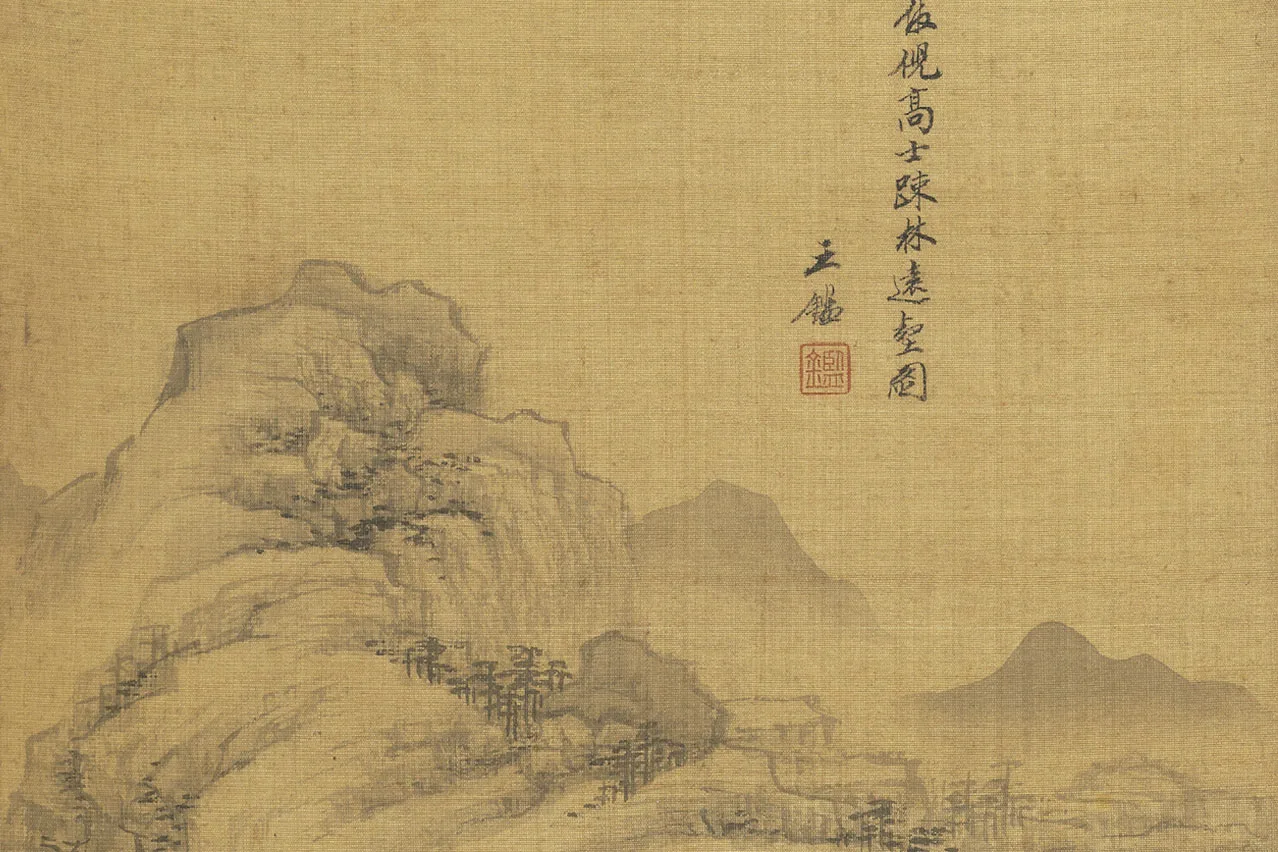 倣倪高士踈林遠壑圖
王鑑
鑑